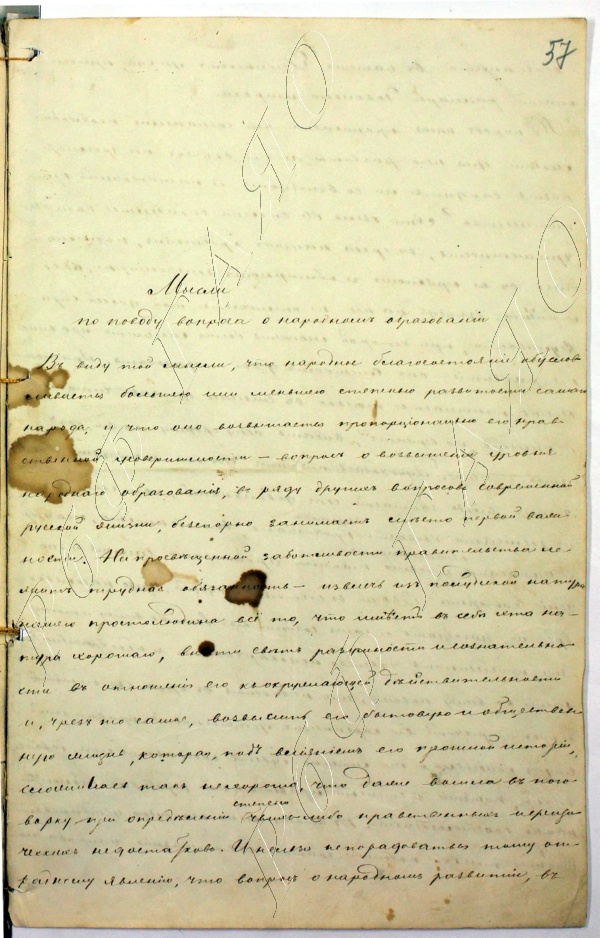 57
Мысли
по поводу вопроса о народномъ образованіи
Въ виду той мысли, что народное благосостояніе обуслов-
ливается большею или меньшею степенью развитости самаго
народа, и что оно возвышается пропорціонально его нрав-
ственной совершенности – вопросъ о возвышеніи уровня
народнаго образованія, въ ряду другихъ вопросовъ современной
русской жизни, безспорно занимаетъ мѣсто первой важ-
ности. На просвѣщенной заботливости правительства ле-
житъ трудная обязанность – извлечь изъ полудикой натуры
нашего простолюдина всё то, что имѣетъ въ себѣ эта на-
тура хорошаго, внести свѣтъ разумности и сознательно-
сти въ отношенія его къ окружающей дѣйствительности
и, чрезъ то самое, возвысить его бытовую и обществен-
ную жизнь, которая, подъ вліяніемъ его прошлой исторіи,
сложилась такъ нехорошо, что даже вошла въ пого-
ворку при опредѣленіи степени чьихъ-либо нравственныхъ и
недостатковъ. И нельзя не порадоваться тому от-
радному явленію, что вопросъ о народномъ развитіи, въ